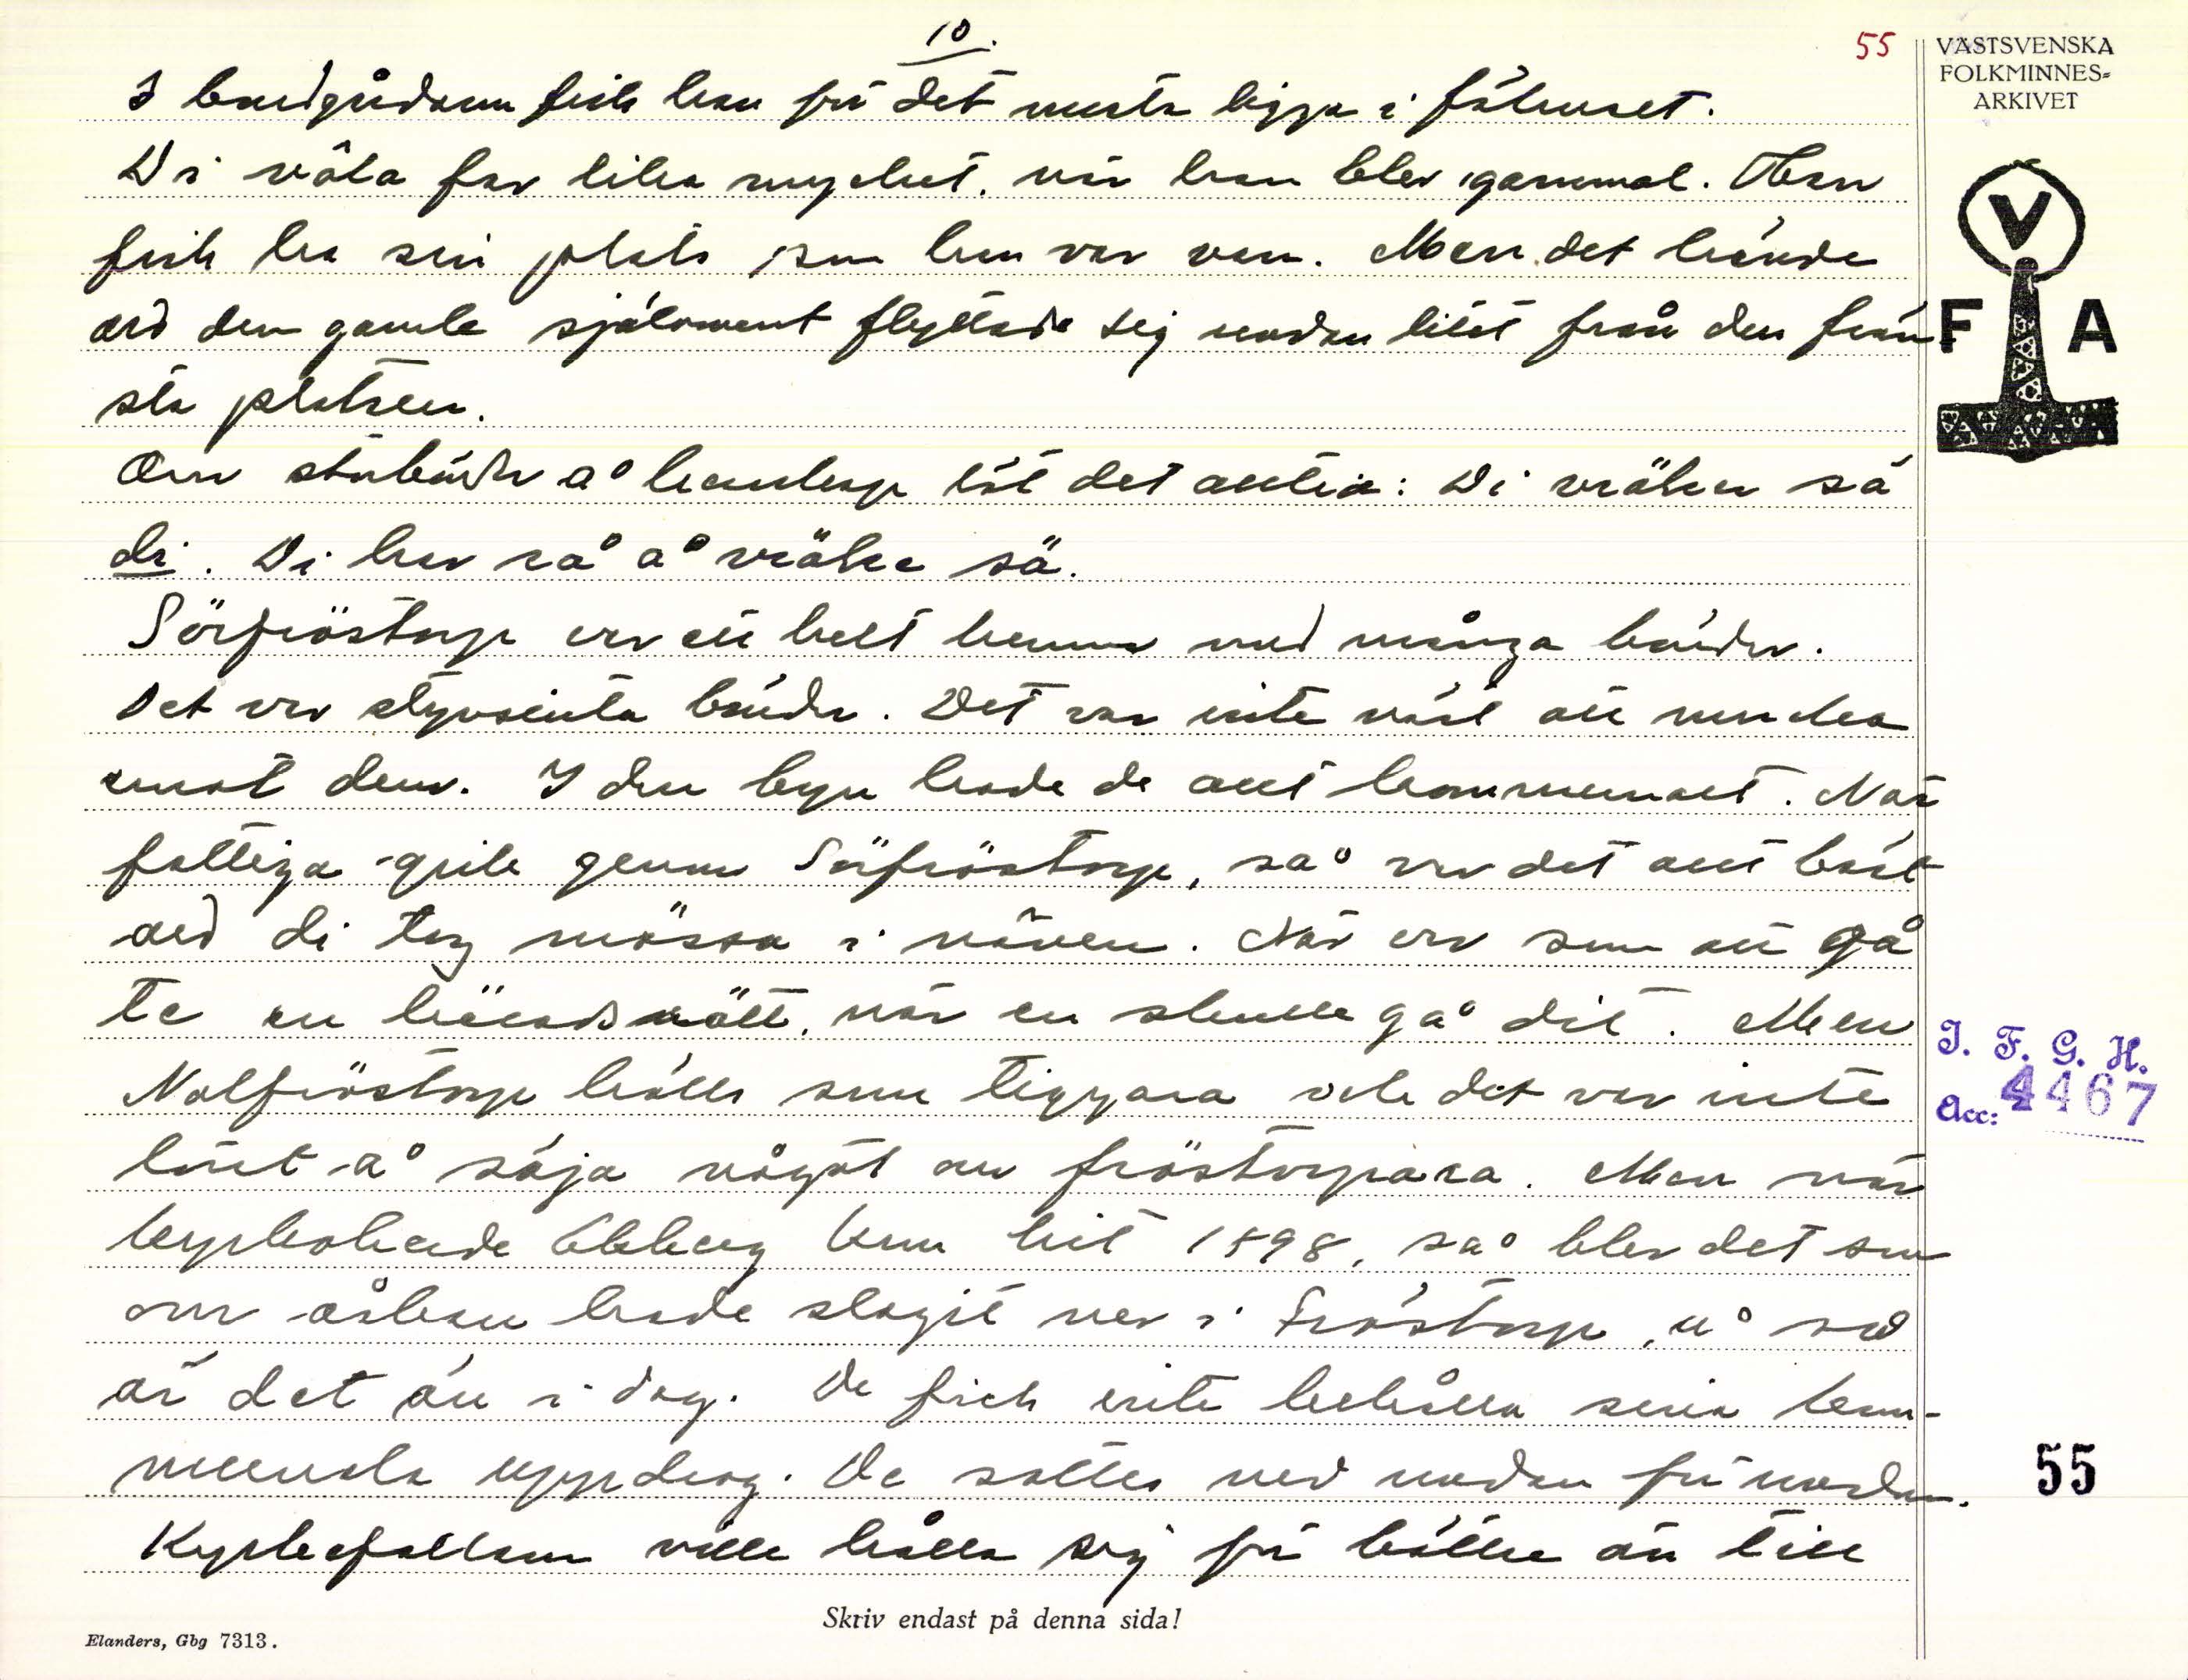 10.
55
VÄSTSVENSKA
FOLKMINNES-
ARKIVET
I bondgårdarna fick han för det mesta ligga i fähuset.
Di våla far lika mycket, när han blev gammal. Han
fick ha sin plats som han var van. Men det hände
ad den gamle självment flyttade sig undan litet från den främ
sta platsen.
Om storbönder å herrskap lät det antia: Di vräker sä
di. Di har rå å vräka sä.
Sörfröstorp var ett helt hemman med många bönder.
Det var styvsinta bönder. Det var inte värt att mucka
emot dem. I den byn hade de allt kommunalt. När
fattiga gick genom Sörfröstorp, så var det allt bäst
ad di tog mössa i näven. När var som att gå
te en häradsrätt, när en skulle gå dit. Men
Nolfröstorp hölls som tiggara och det var inte
lönt å säja något om fröstorpara. Men när
kyrkoherde Ekberg kom hit 1898, så blev det som
om åskan hade slagit ner i Fröstorp, å så
är det än i dag. De fick inte behålla sina kom-
munala uppdrag. De sattes ned undan för undan.
Kyrkefallam ville hålla sig för bättre än till
V
F A
I. F. G. H.
Acc: 4467
55
Skriv endast på denna sida!
Elanders, Gbg 7313.